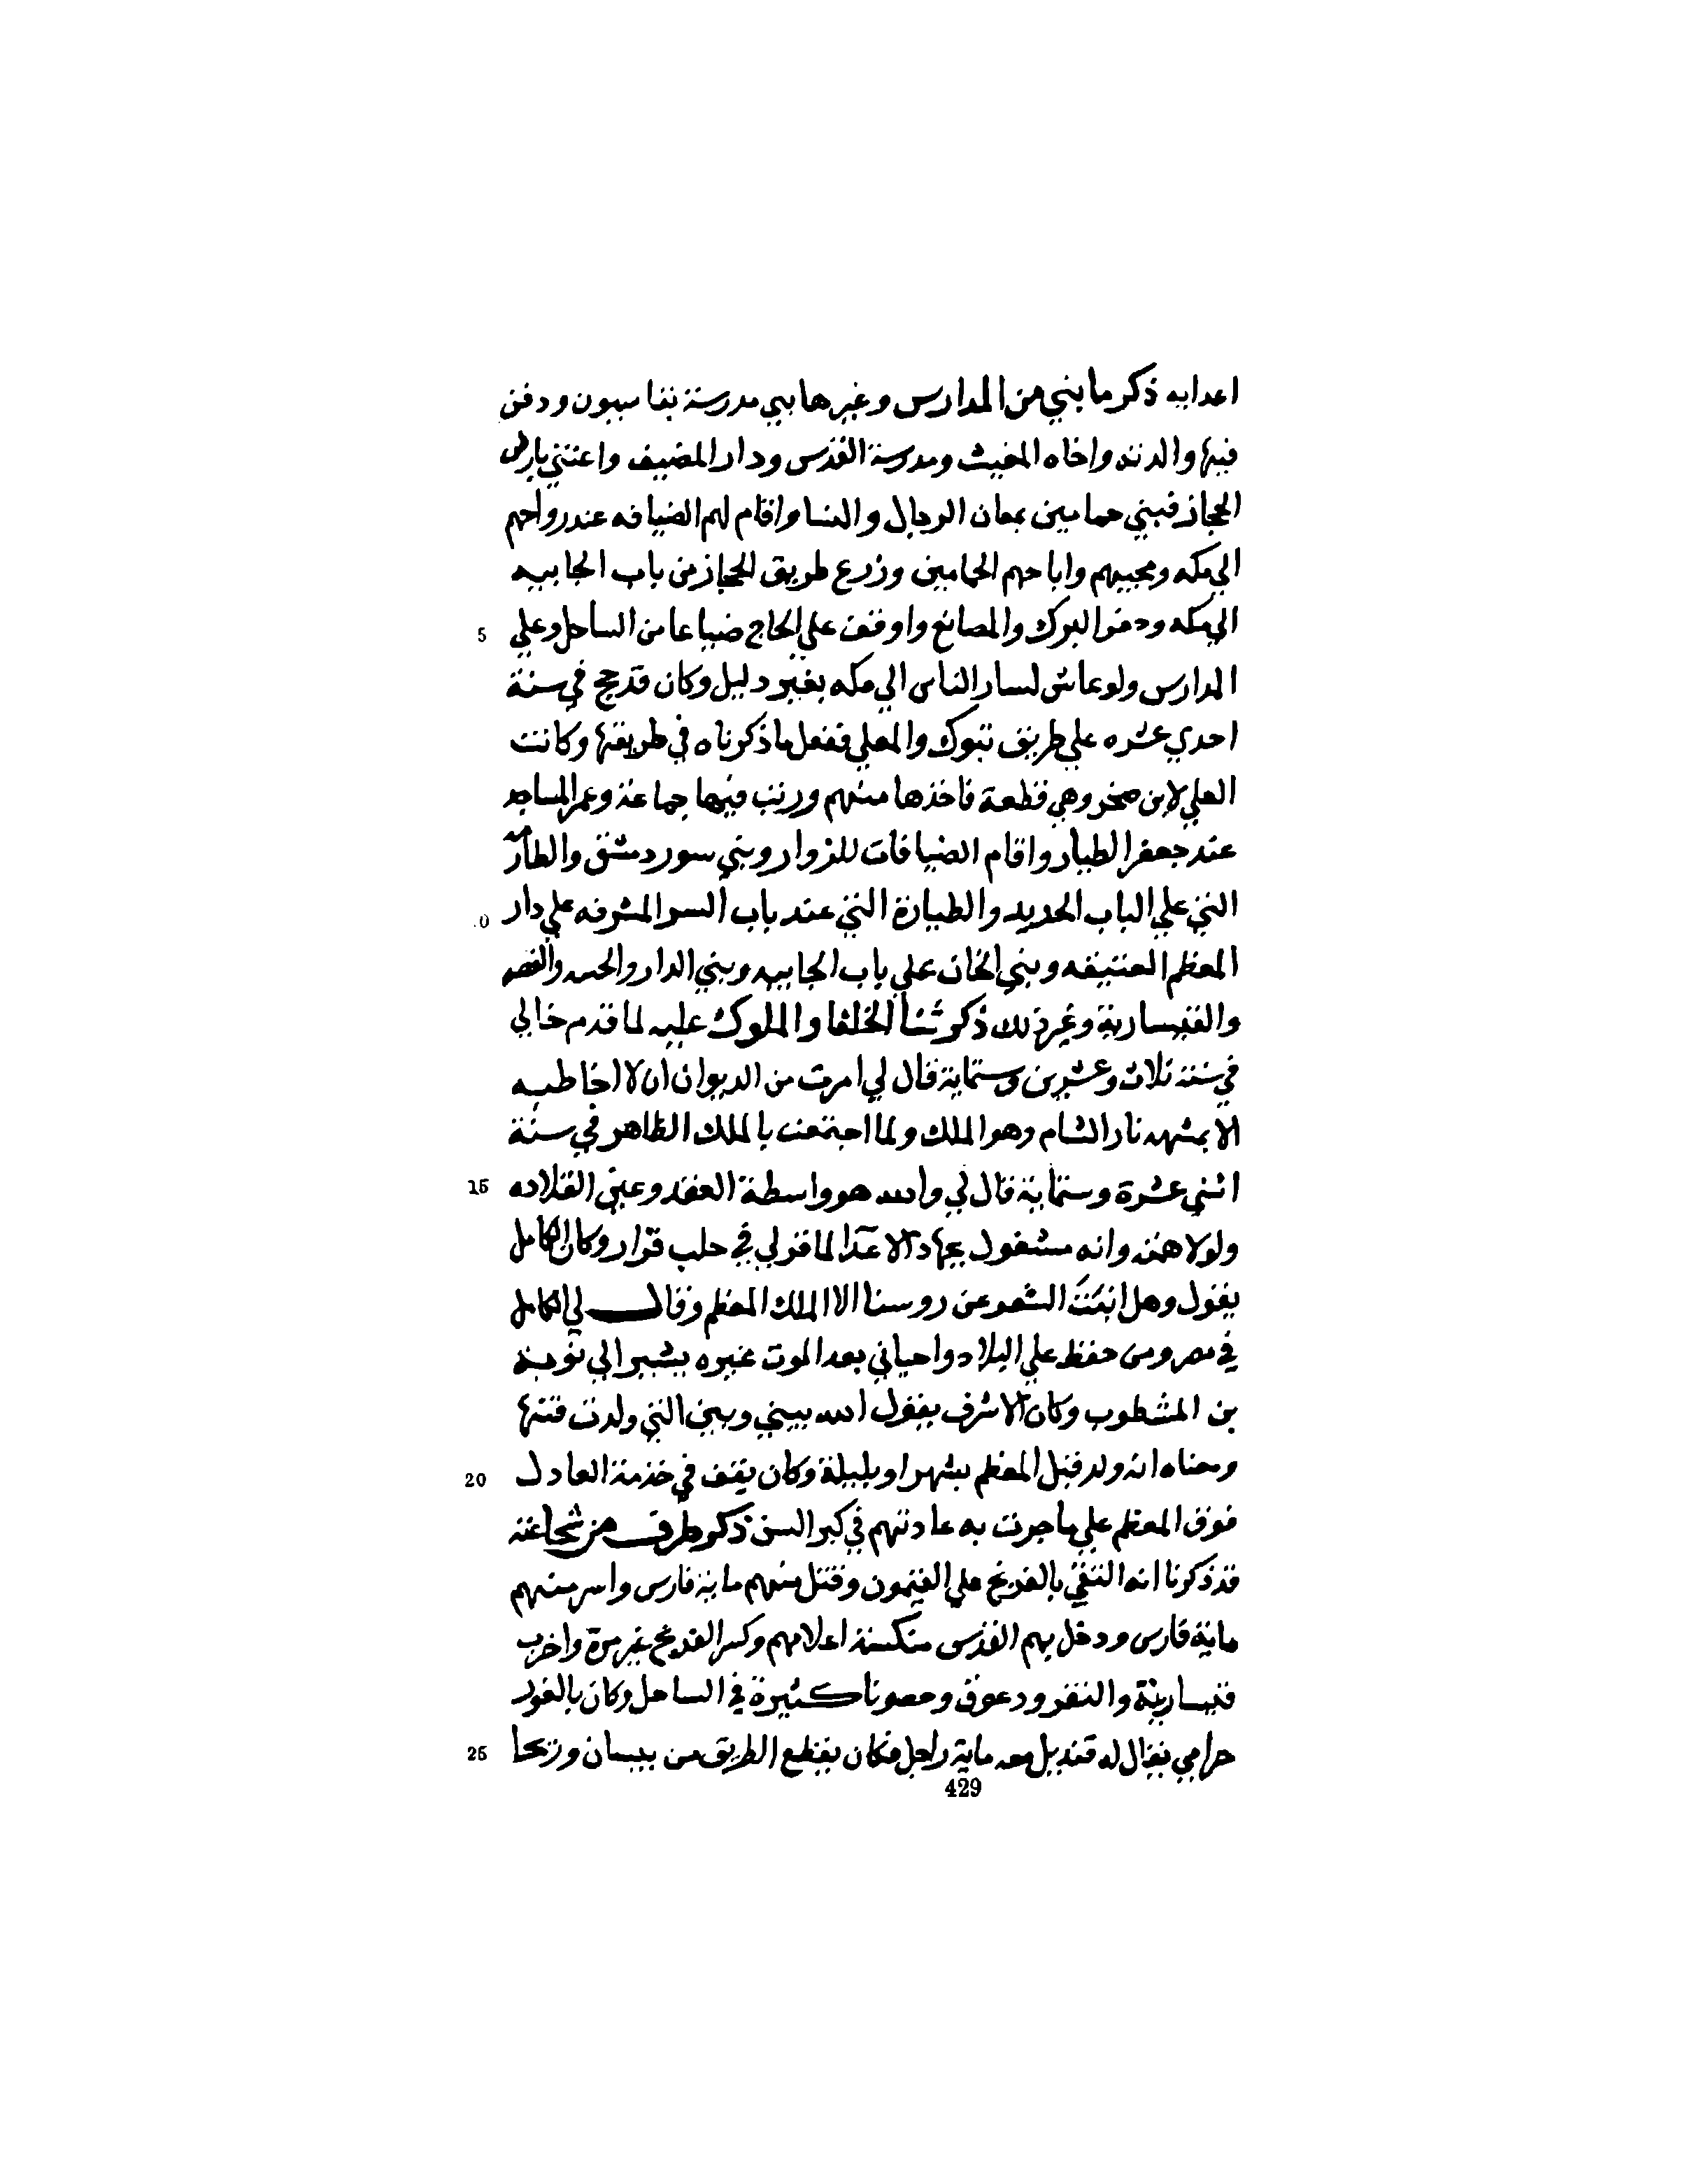 اعدايه ذكر ما بني من المدارس وغيرها بني مدرسة بقاسيون ودفن
فيها والدته واخاه المغيث ومدرسة القدس ودار المضيف واعتني بارض
الحجاز فبني حمامين بمعان الرجال والنسا واقام لهم الضيافه عند رواحهم
الي مكه ومجييهم واباحهم الحمامين وزرع طريق الحجاز من باب الجابيه
الي مكه البرك والمصانع واوقف علي الحاج ضياعا من الساحل وعلي
5
المدارس ولو عاش لسار الناس الي مكه بغير دليل وكان قد حج في سنة
احدي عشره علي طريق تبوك والعلي ففعل ما ذكرناه في طريقها وكانت
العلي لابن صخر وهي قطعة فاخذها منهم ورتب فيها جماعة وعمر المساجد
عند جعفر الطيار واقام الضيافات للزوار وبني سور دمشق والطارمه
التي علي الباب الحديد والطيارة التي عند باب السر المشرفه علي دار
0
المعظم العتيقه وبني الخان علي باب الجابيه وبني الدار
والقيسارية وغير ذلك ذكر ثنا الخلفا والملوك عليه لما قدم خالي
في سنة ثلاث وعشرين وستماية قال لي امرت من الديوان ان لا اخاطبه
الا بمشهد نار الشام وهو الملك ولما اجتمعت بالملك الظاهر في سنة
اثني عشرة وستماية قال لي والله هو واسطة العقد وعين القلاده
15
ولولا همته وانه مشغول بجهاد الاعدا لما قر لي في حلب قرار وكان الكامل
يقول وهل انبت الشعر عن روسنا الا الملك المعظم وقال لي الكامل
في مصر ومن حفظ علي البلاد واحياني بعد الموت غيره يشير الي نوبة
بن المشطوب وكان الاشرف يقول الله بيني وبين التي ولدت قبلها
ومعناه انه ولد قبل المعظم بشهر او بليلة وكان يقف في خدمة العادل
20
فوق المعظم علي ما جرت به عادتهم في كبر السن ذكر طرف من شجاعته
قد ذكرنا انه التقي بالفرنج علي القيمون وقتل منهم ماية فارس واسر منهم
ماية فارس ودخل بهم القدس منكسة اعلامهم وكسر الفرنج غير مرة واخرب
قيسارية والنقر ودعوق وحصونا كثيرة في الساحل وكان بالغور
حرامي يقال له قنديل معه ماية راجل فكان يقطع الطريق من بيسان وزنحا
25
429